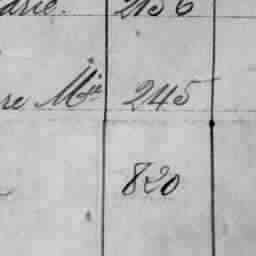 arie. 2156
re Mie 245
820